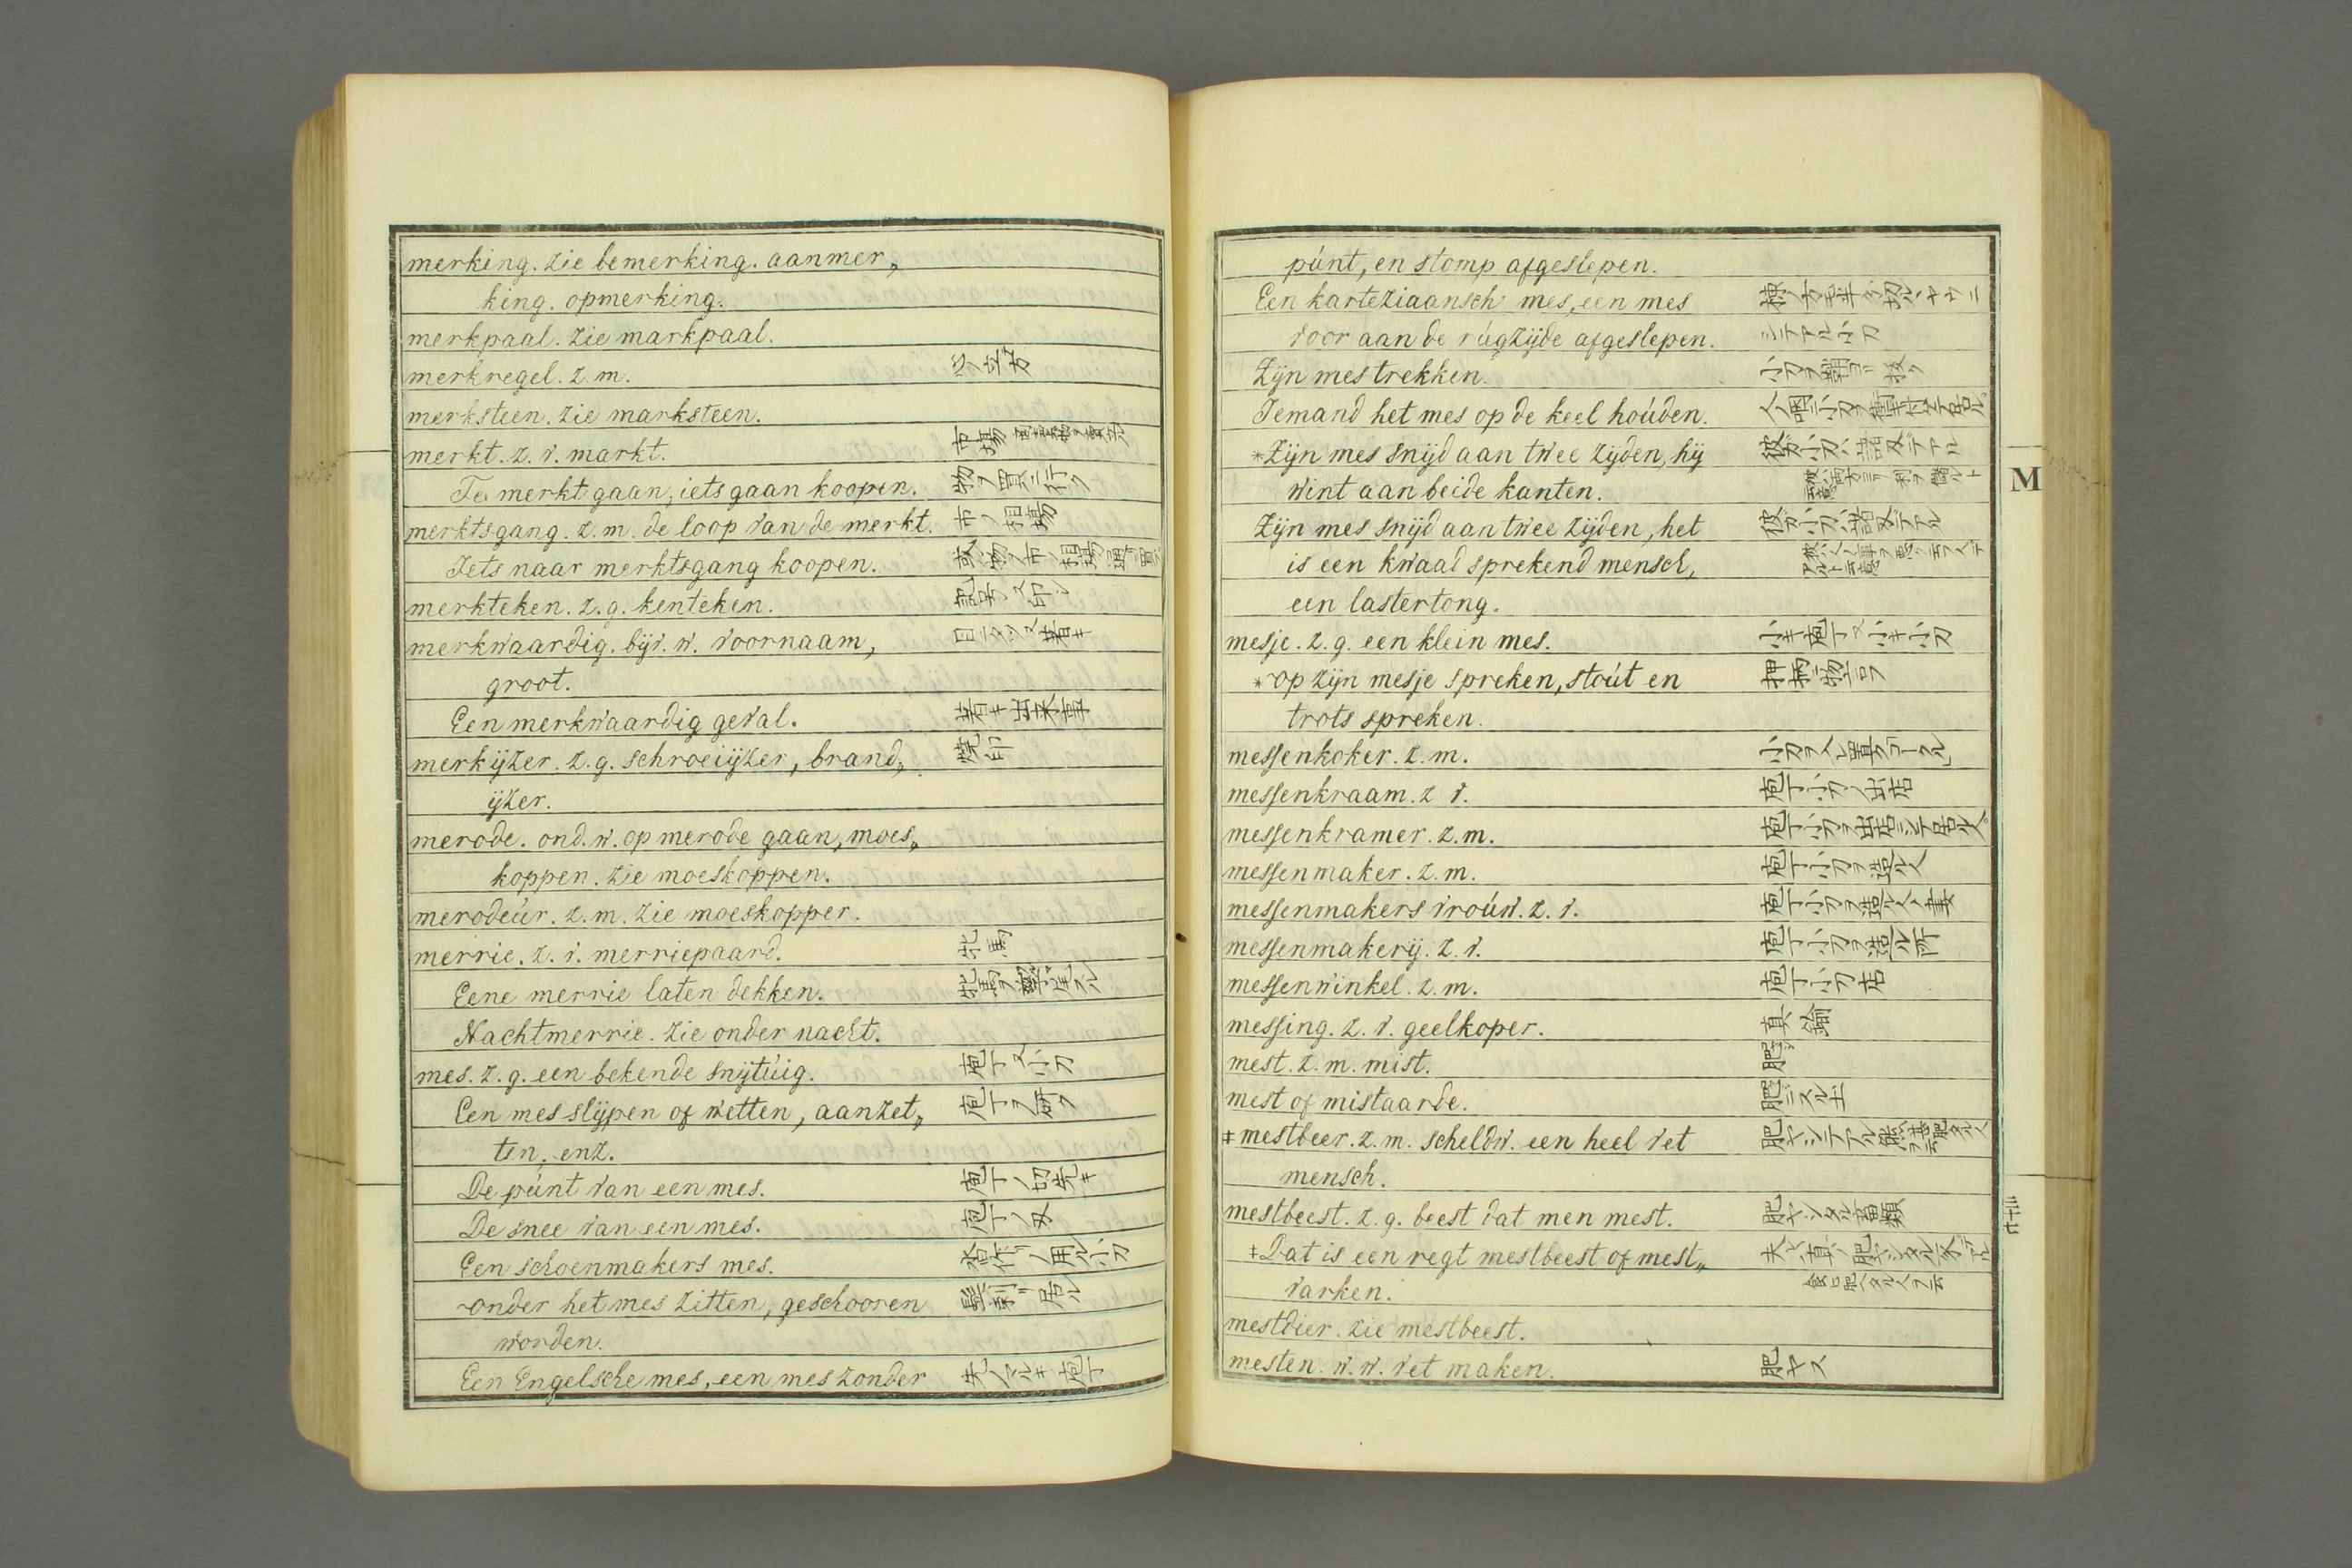 merking. zie bemerking. aanmer„
king. opmerking.
merkpaal. zie markpaal.
merkregel. z. m.
merksteen. zie marksteen.
merkt. z. v. markt. 市場
Te merkt gaan, iets gaan koopen. 物ヲ買ニ行ク
merktsgang. z. m. de loop van de merkt. 市ノ相場
Iets naar merktsgang koopen.
merkteken. z. g. kenteken.
merkwaardig. bijv. w. voornaam,
groot.
Een merkwaardig geval. 著キ出来事
merkyzer. z. g. schroeiijzer, brand„ 焼印
ijzer.
merode. ond. w. op merode gaan, moes„
koppen. zie moeskoppen.
merodeúr. z. m. zie moeskopper.
merrie. z. v. merriepaard. 牝馬
Eene merrie laten dekken.
Nachtmerrie. zie onder nacht.
mes. z. g. een bekende snijtúig. 庖丁又小刀
Een mes slijpen of wetten, aanzet„ 庖丁ヲ研ク
ten, enz.
De púnt van een mes. 庖丁ノ切先キ
De snee van een mes. 庖丁ノ刄
Een schoenmakers mes.
onder het mes zitten, geschooren
worden.
Een Engelsche mes, een mes zonder
púnt, en stomp afgeslepen.
Een karteziaansch mes, een mes
voor aan de rúgzijde afgeslepen. シテアル小刀
Zijn mes trekken.
Iemand het mes op de keel hoúden.
*Zijn mes snijd aan twee zijden, hij
wint aan beide kanten.
Zijn mes snijd aan twee zijden, het
is een kwaad sprekend mensch,
een lastertong.
mesje. z. g. een klein mes. 小キ庖丁又小キ小刀
*op zijn mesje spreken, stoút en
trots spreken.
messenkoker. z. m.
messenkraam. z v. 庖丁小刀ノ出店
messenkramer. z. m.
messenmaker. z. m. 庖丁小刀ヲ造ル人
messenmakers vroúw. z. v. 庖丁小刀ヲ造ル人ノ妻
messenmakerij. z. v. 庖丁小刀ヲ造ル所
messenwinkel. z. m. 庖丁小刀店
messing. z. v. geelkoper. 真鍮
mest. z. m. mist. 肥
mest of mistaarde. 肥ニスル土
‡mestbeer. z. m. scheldw. een heel vet
mensch.
mestbeest. z. g. beest dat men mest. 肥ヤシタル畜類
‡Dat is een regt mestbeest of mest„
varken.
mestdier. zie mestbeest.
mesten. w. w. vet maken. 肥ヤス
M